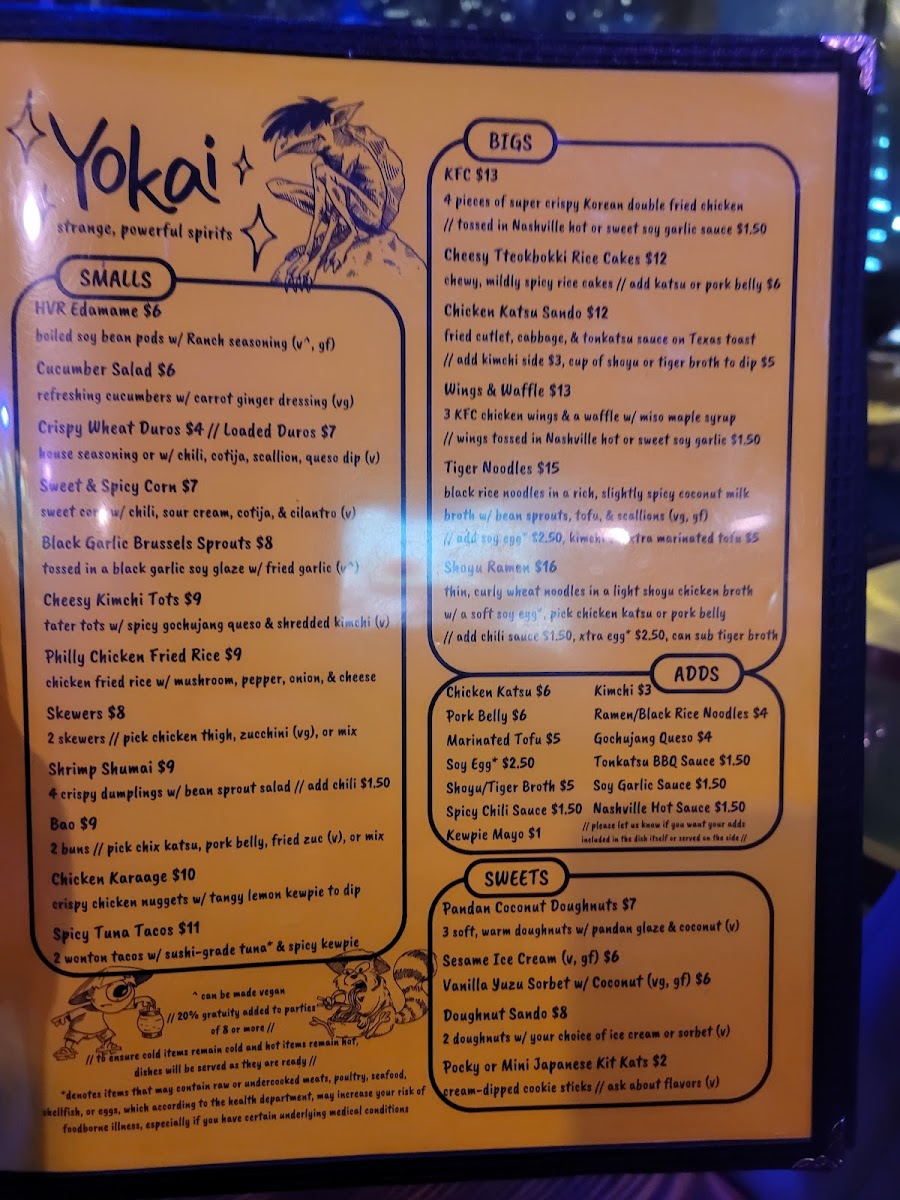 Yokai
strange, powerful spirits
SMALLS
HVR Edamame $6
boiled soy bean pods w/ Ranch seasoning (v^, gf)
Cucumber Salad $6
refreshing cucumbers w/ carrot ginger dressing (vg)
Crispy Wheat Duros $4 // Loaded Duros $7
house seasoning or w/ chili, cotija, scallion, queso dip (v)
Sweet & Spicy Corn $7
sweet corn w/ chili, sour cream, cotija, & cilantro (v)
Black Garlic Brussels Sprouts $8
tossed in a black garlic soy glaze w/ fried garlic (v^)
Cheesy Kimchi Tots $9
tater tots w/ spicy gochujang queso & shredded kimchi (v)
Philly Chicken Fried Rice $9
chicken fried rice w/ mushroom, pepper, onion, & cheese
Skewers $8
2 skewers // pick chicken thigh, zucchini (vg), or mix
Shrimp Shumai $9
4 crispy dumplings w/ bean sprout salad // add chili $1.50
Bao $9
2 buns // pick chix katsu, pork belly, fried zuc (v), or mix
Chicken Karaage $10
crispy chicken nuggets w/ tangy lemon kewpie to dip
Spicy Tuna Tacos $11
2 wonton tacos w/ sushi-grade tuna* & spicy kewpie
^ can be made vegan
// 20% gratuity added to parties
of 8 or more //
// to ensure cold items remain cold and hot items remain hot,
dishes will be served as they are ready //
*denotes items that may contain raw or undercooked meats, poultry, seafood,
shellfish, or eggs, which according to the health department, may increase your risk of
foodborne illness, especially if you have certain underlying medical conditions
BIGS
KFC $13
4 pieces of super crispy Korean double fried chicken
// tossed in Nashville hot or sweet soy garlic sauce $1.50
Cheesy Tteokbokki Rice Cakes $12
chewy, mildly spicy rice cakes // add katsu or pork belly $6
Chicken Katsu Sando $12
fried cutlet, cabbage, & tonkatsu sauce on Texas toast
// add kimchi side $3, cup of shoyu or tiger broth to dip $5
Wings & Waffle $13
3 KFC chicken wings & a waffle w/ miso maple syrup
// wings tossed in Nashville hot or sweet soy garlic $1.50
Tiger Noodles $15
black rice noodles in a rich, slightly spicy coconut milk
broth w/ bean sprouts, tofu, & scallions (vg, gf)
// add soy egg* $2.50, kimchi xtra marinated tofu $5
Shoyu Ramen $16
thin, curly wheat noodles in a light shoyu chicken broth
w/ a soft soy egg*, pick chicken katsu or pork belly
// add chili sauce $1.50, xtra egg* $2.50, can sub tiger broth
ADDS
Chicken Katsu $6
Pork Belly $6
Marinated Tofu $5
Soy Egg* $2.50
Shoyu/Tiger Broth $5
Spicy Chili Sauce $1.50
Kewpie Mayo $1
Kimchi $3
Ramen/Black Rice Noodles $4
Gochujang Queso $4
Tonkatsu BBQ Sauce $1.50
Soy Garlic Sauce $1.50
Nashville Hot Sauce $1.50
// please let us know if you want your adds
included in the dish itself or served on the side //
SWEETS
Pandan Coconut Doughnuts $7
3 soft, warm doughnuts w/ pandan glaze & coconut (v)
Sesame Ice Cream (v, gf) $6
Vanilla Yuzu Sorbet w/ Coconut (vg, gf) $6
Doughnut Sando $8
2 doughnuts w/ your choice of ice cream or sorbet (v)
Pocky or Mini Japanese Kit Kats $2
cream-dipped cookie sticks // ask about flavors (v)